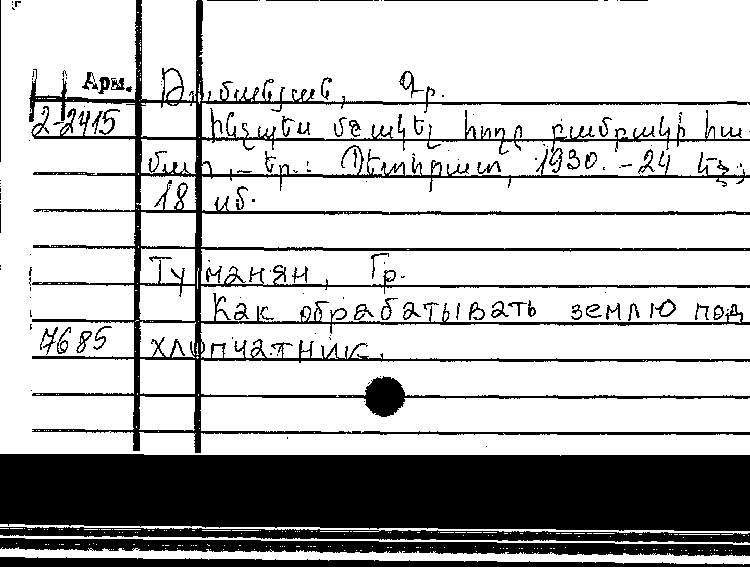 Арм. Թումանյան, Գր.
2-2415 Ինչպես մշակել հողը բամբակի հա-
մար, – Եր.: Պետհրատ, 1930. – 24 էջ;
18 սմ.
Туманян, Гр.
Как обрабатывать землю под
7685 хлопчатник.